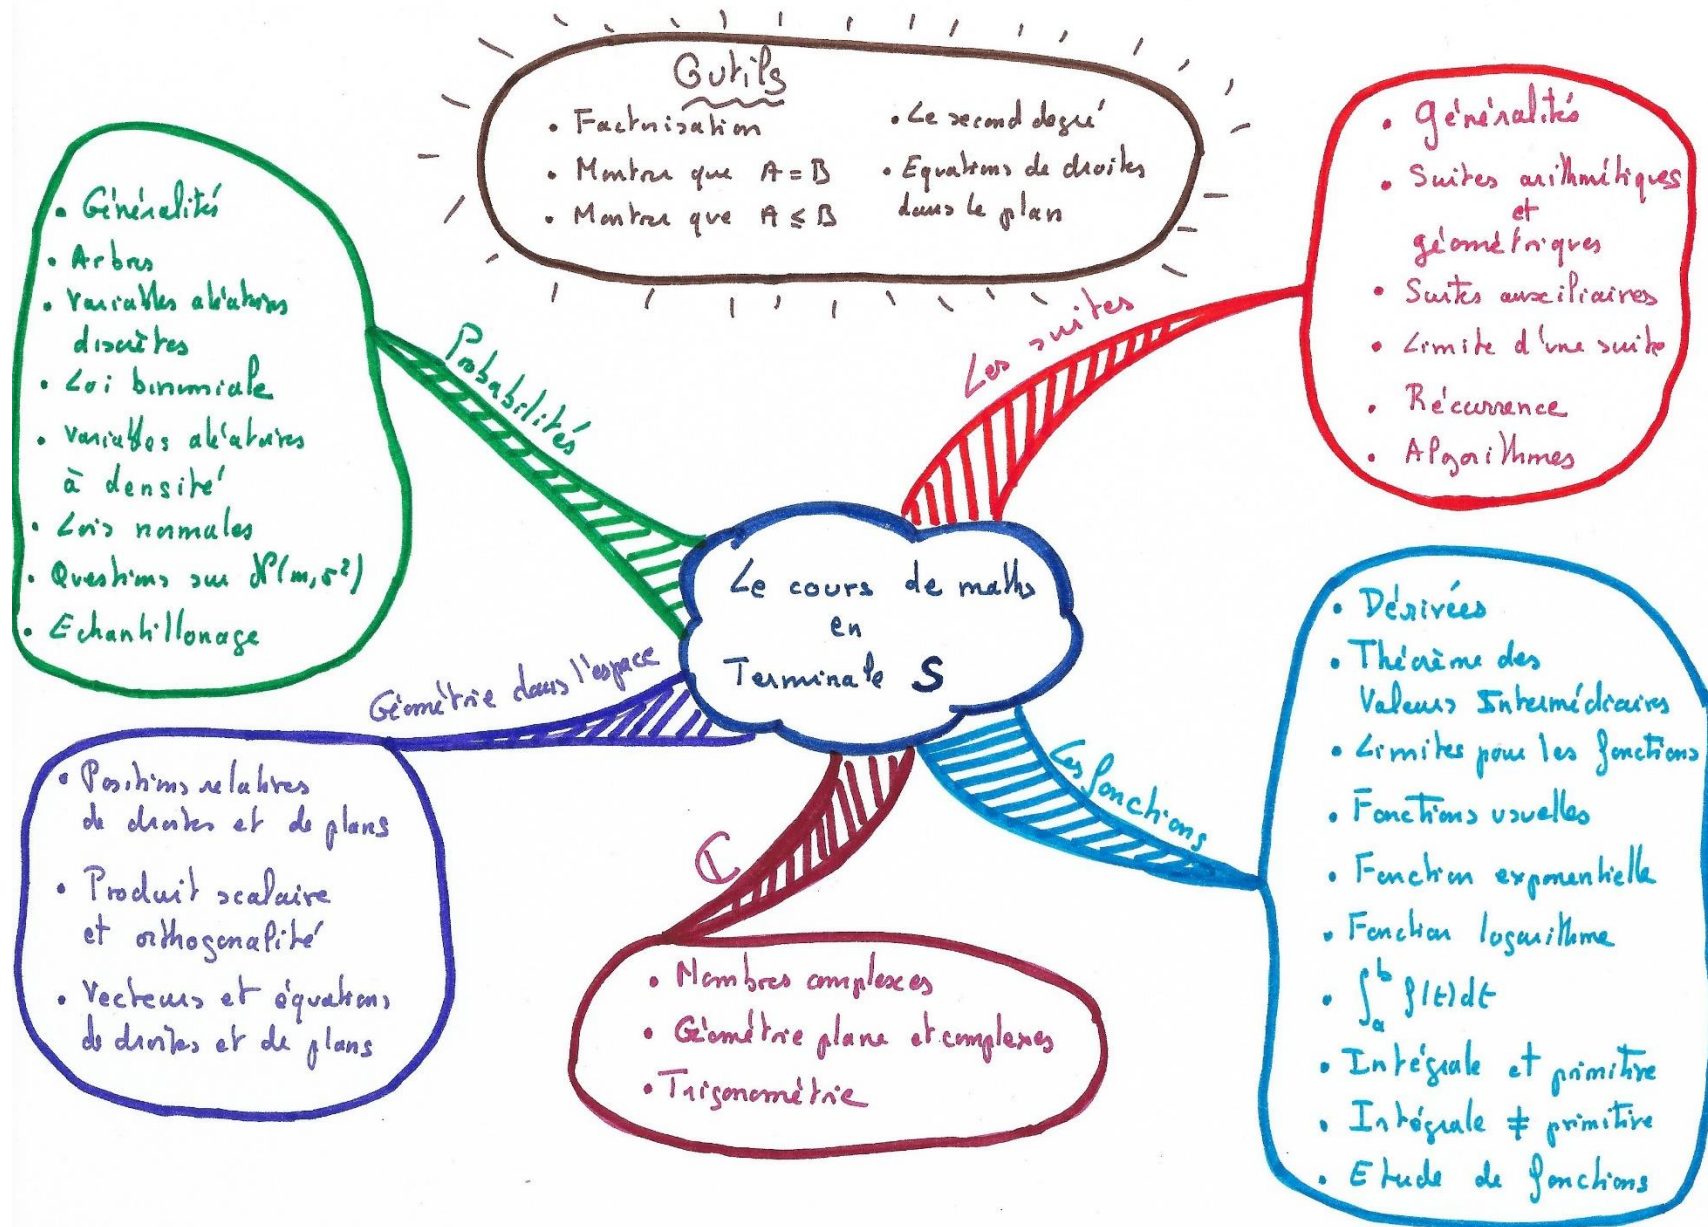 Outils
• Factorisation
• Montrer que A = B
• Montrer que A ≤ B
• Le second degré
• Equations de droites
dans le plan
• Généralités
• Arbres
• Variables aléatoires
discrètes
• Loi binomiale
• Variables aléatoires
à densité
• Lois normales
• Questions sur N(m, σ²)
• Echantillonage
Probabilités
Les suites
• Généralités
• Suites arithmétiques
et
géométriques
• Suites auxiliaires
• Limite d'une suite
• Récurrence
• Algorithmes
Le cours de maths
en
Terminale S
Géométrie dans l'espace
• Positions relatives
de droites et de plans
• Produit scalaire
et orthogonalité
• Vecteurs et équations
de droites et de plans
ℂ
• Nombres complexes
• Géométrie plane et complexes
• Trigonométrie
Les fonctions
• Dérivées
• Théorème des
Valeurs Intermédiaires
• Limites pour les fonctions
• Fonctions usuelles
• Fonction exponentielle
• Fonction logarithme
• ∫ₐᵇ f(t)dt
• Intégrale et primitive
• Intégrale ≠ primitive
• Etude de fonctions